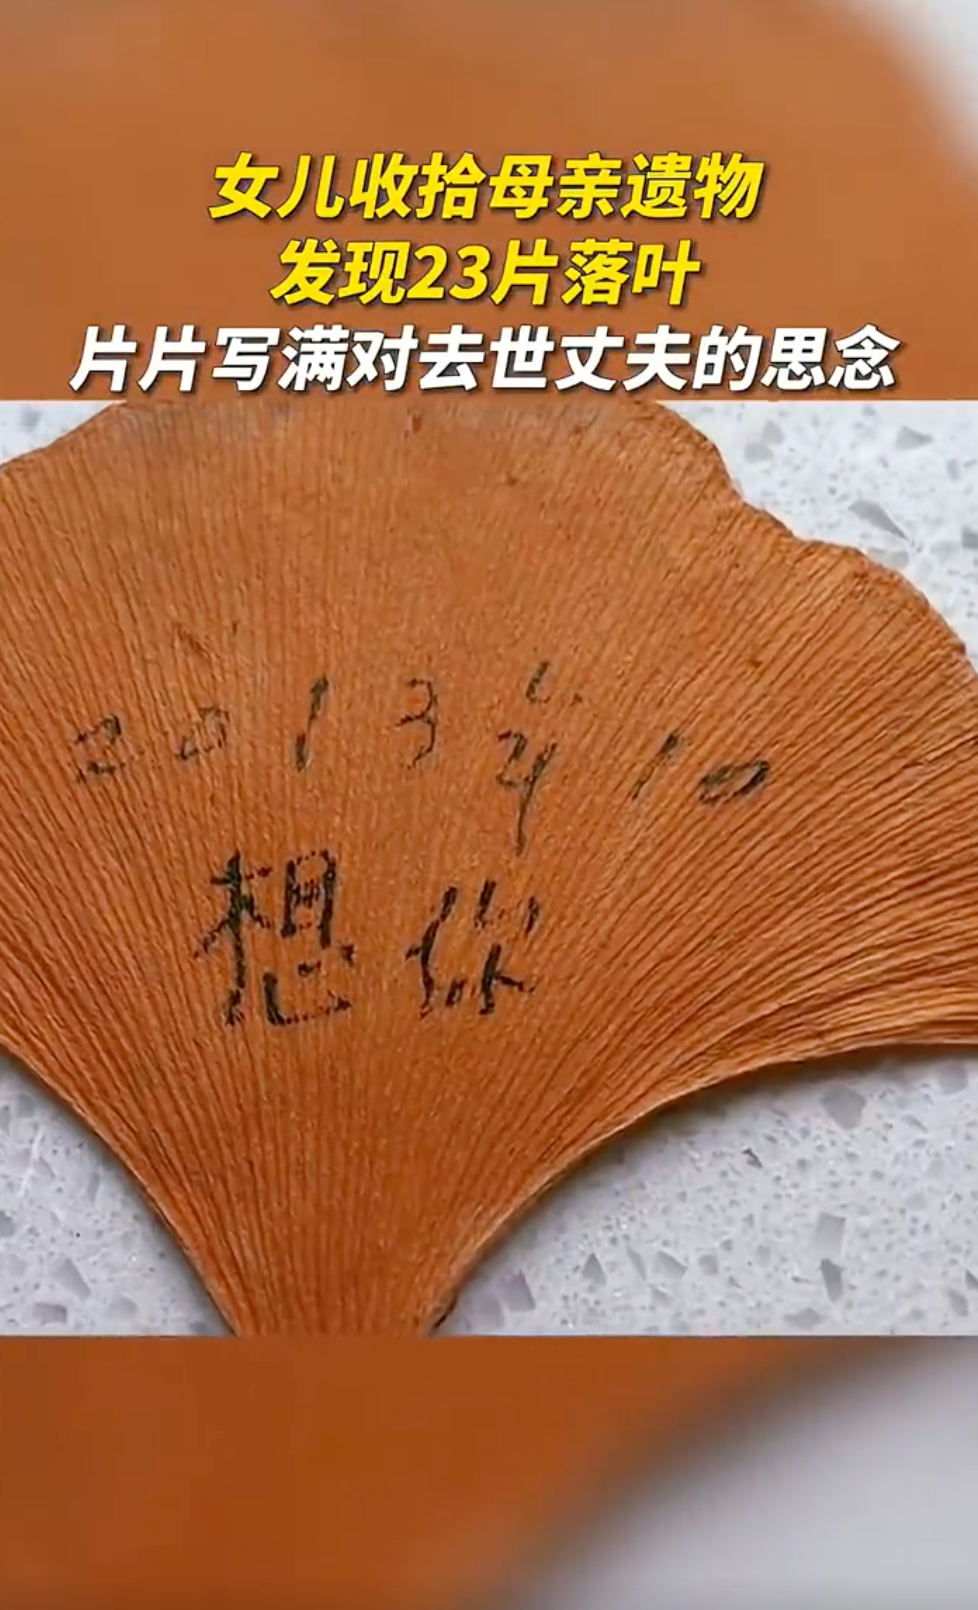 女儿收拾母亲遗物
发现23片落叶
片片写满对去世丈夫的思念
2013 4 10
想你